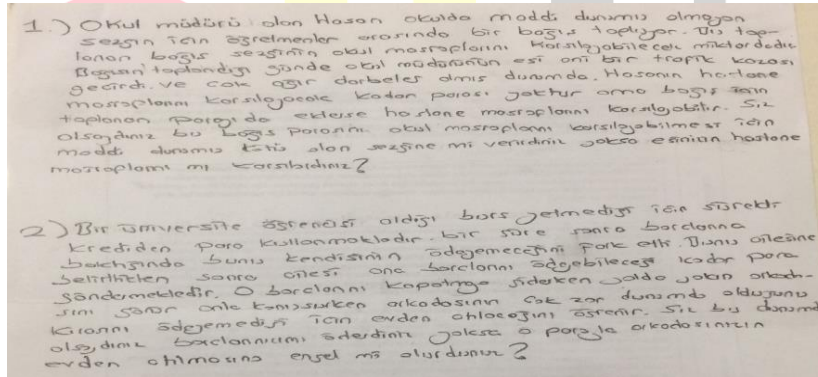 1.) Okul müdürü olan Hasan okulda maddi durumu olmayan
Sezgin için öğretmenler arasında bir bağış topluyor. Bu top-
lanan bağış sezginin okul masraplarını karşılayabilecek miktardadır.
Bağışın toplandığı günde okul müdürünün eşi ani bir trafik kazası
geçirdi. ve çok ağır darbeler almış durumda. Hasanın hastane
masraplarını karşılayacak kadar parası yoktur ama bağış için
toplanan parayı da eklerse hastane masraplarını karşılayabilir. Siz
olsaydınız bu bağış parasını okul masraplarını karşılayabilmesi için
maddi durumu kötü olan sezgine mi verirdiniz yoksa eşinizin hastane
masraplarını mı karşılardınız?
2) Bir üniversite öğrencisi aldığı burs yetmediği için sürekli
krediden para kullanmaktadır. bir süre sonra borclarına
baktığında bunu kendisinin ödeyemeceğini fark etti. Bunu ailesine
belirttikten sonra ailesi ona borclarını ödeyebileceği kadar para
göndermektedir. O borclarını kapatmaya giderken yolda yakın arkada-
şını görür onla konuşurken arkadaşının çok zor durumda olduğunu
kirasını ödeyemediği için evden atılacağını öğrenir. Siz bu durumda
olsaydınız borclarınızımı öderdiniz yoksa o parayla arkadaşınızın
evden atılmasına engel mi olurdunuz?